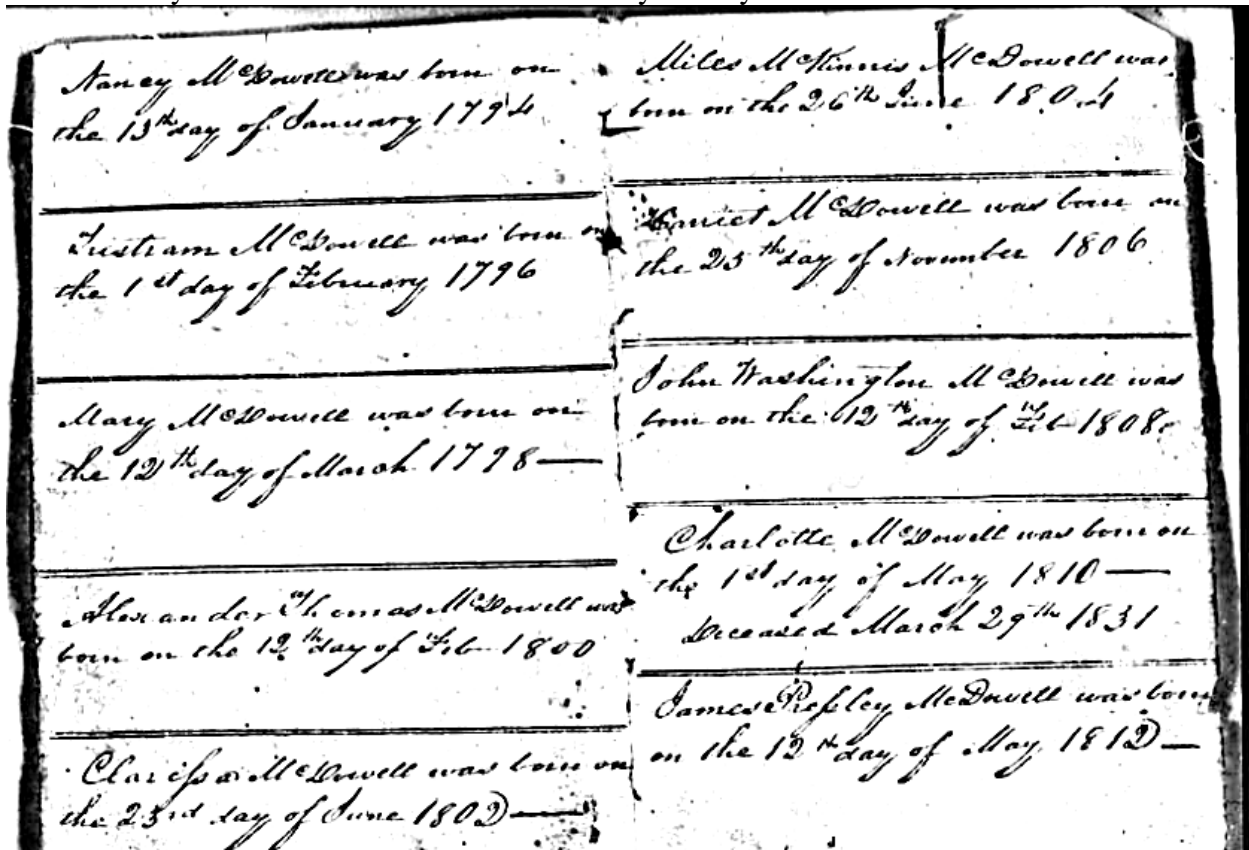 Nancy McDowell was born on
the 13th day of January 1794
Tristram McDowell was born on
the 1st day of February 1796
Mary McDowell was born on
the 12th day of March 1798 —
Alexander Thomas McDowell was
born on the 12th day of Feb 1800
Clarissa McDowell was born on
the 23rd day of June 1802 —
Miles McKinnis McDowell was
born on the 26th June 1804
Harriet McDowell was born on
the 25th day of November 1806
John Washington McDowell was
born on the 12th day of Feb 1808
Charlotte McDowell was born on
the 1st day of May 1810 —
Deceased March 29th 1831
James Presley McDowell was born
on the 12th day of May 1812 —